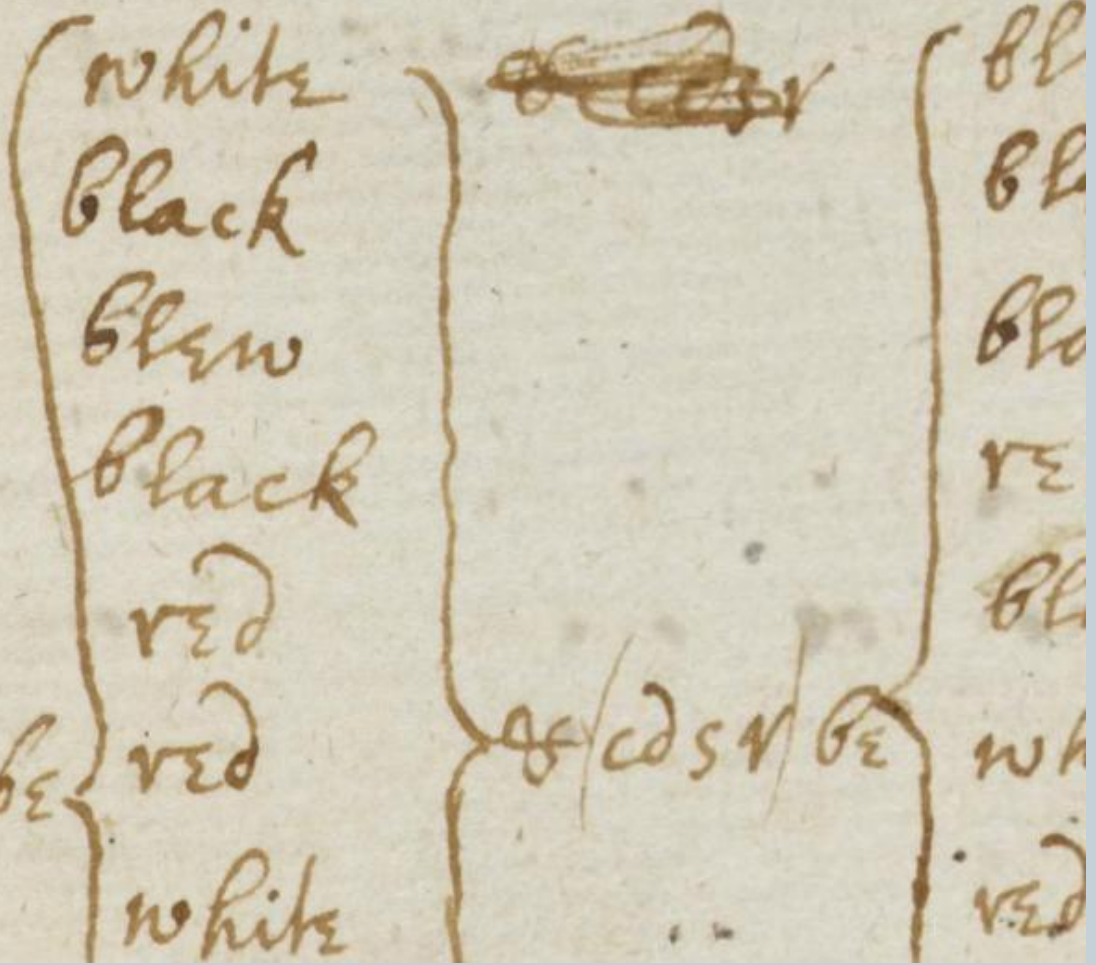 white
black
blew
black
red
red
white
be
& cdsr be
bl
bl
bla
re
bl
wh
red